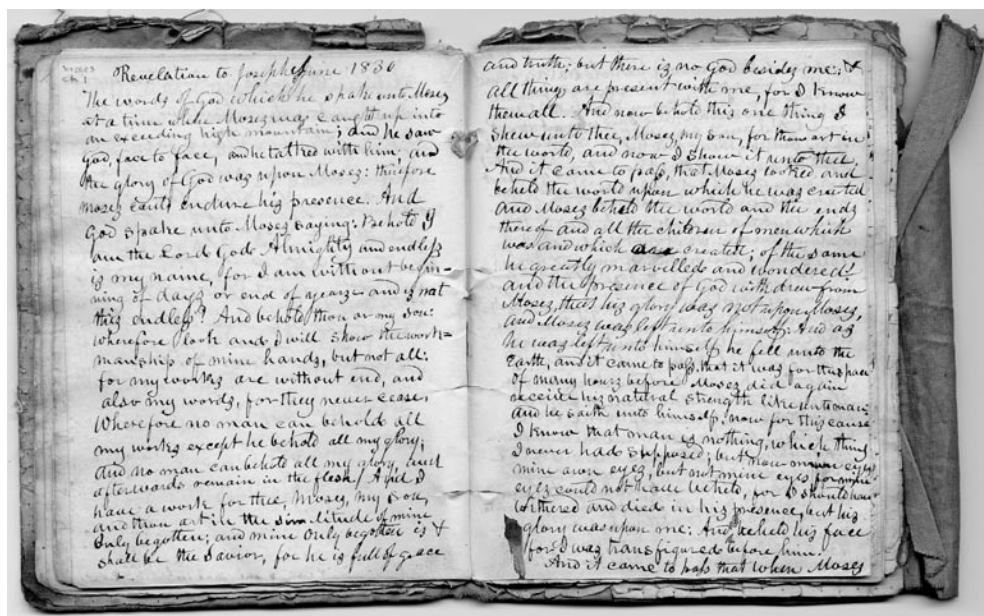 Moses
ch. 1
Revelation to Joseph June 1830
The words of God which he spake unto Moses
at a time when Moses was caught up into
an exceeding high mountain; and he saw
God, face to face, and he talked with him; and
the glory of God was upon Moses: therefore
moses could endure his presence. And
God spake unto Moses saying: Behold I
am the Lord God Almighty and endless
is my name, for I am without begin-
ning of days or end of years and is not
this endless? And behold thou ar my son:
wherefore look and I will show the work=
manship of mine hands, but not all:
for my works are without end, and
also my words, for they never cease,
Wherefore no man can behold all
my works except he behold all my glory;
and no man can behold all my glory, and
afterwards remain in the flesh. And I
have a work for thee, Moses, my son,
and thou art in the similitude of mine
Only begotten; and mine Only begotten is &
shall be the Savior, for he is full of grace
and truth; but there is no God besides me; &
all things are present with me, for I know
them all. And now behold this one thing I
shew unto thee, Moses, my son, for thou art in
the world, and now I show it unto thee,
And it came to pass, that Moses looked and
beheld the world upon which he was created
and Moses beheld the world and the ends
thereof and all the children of men which
was and which are created; of the same
he greatly marvelled and wondered!
and the presence of God withdrew from
Moses, that his glory was not upon Moses,
and Moses was left unto himself: And as
he was left unto himself he fell unto the
Earth, and it came to pass, that it was for the space
of many hours before Moses did again
receive his natural strength like unto man;
and he saith unto himself: now for this cause
I know that man is nothing, which thing
I never had supposed; but now mine eyes,
mine own eyes, but not mine eyes for mine
eyes could not have beheld, for I should have
withered and died in his presence, but his
glory was upon me: And beheld his face
for I was transfigured before him.
And it came to pass that when Moses